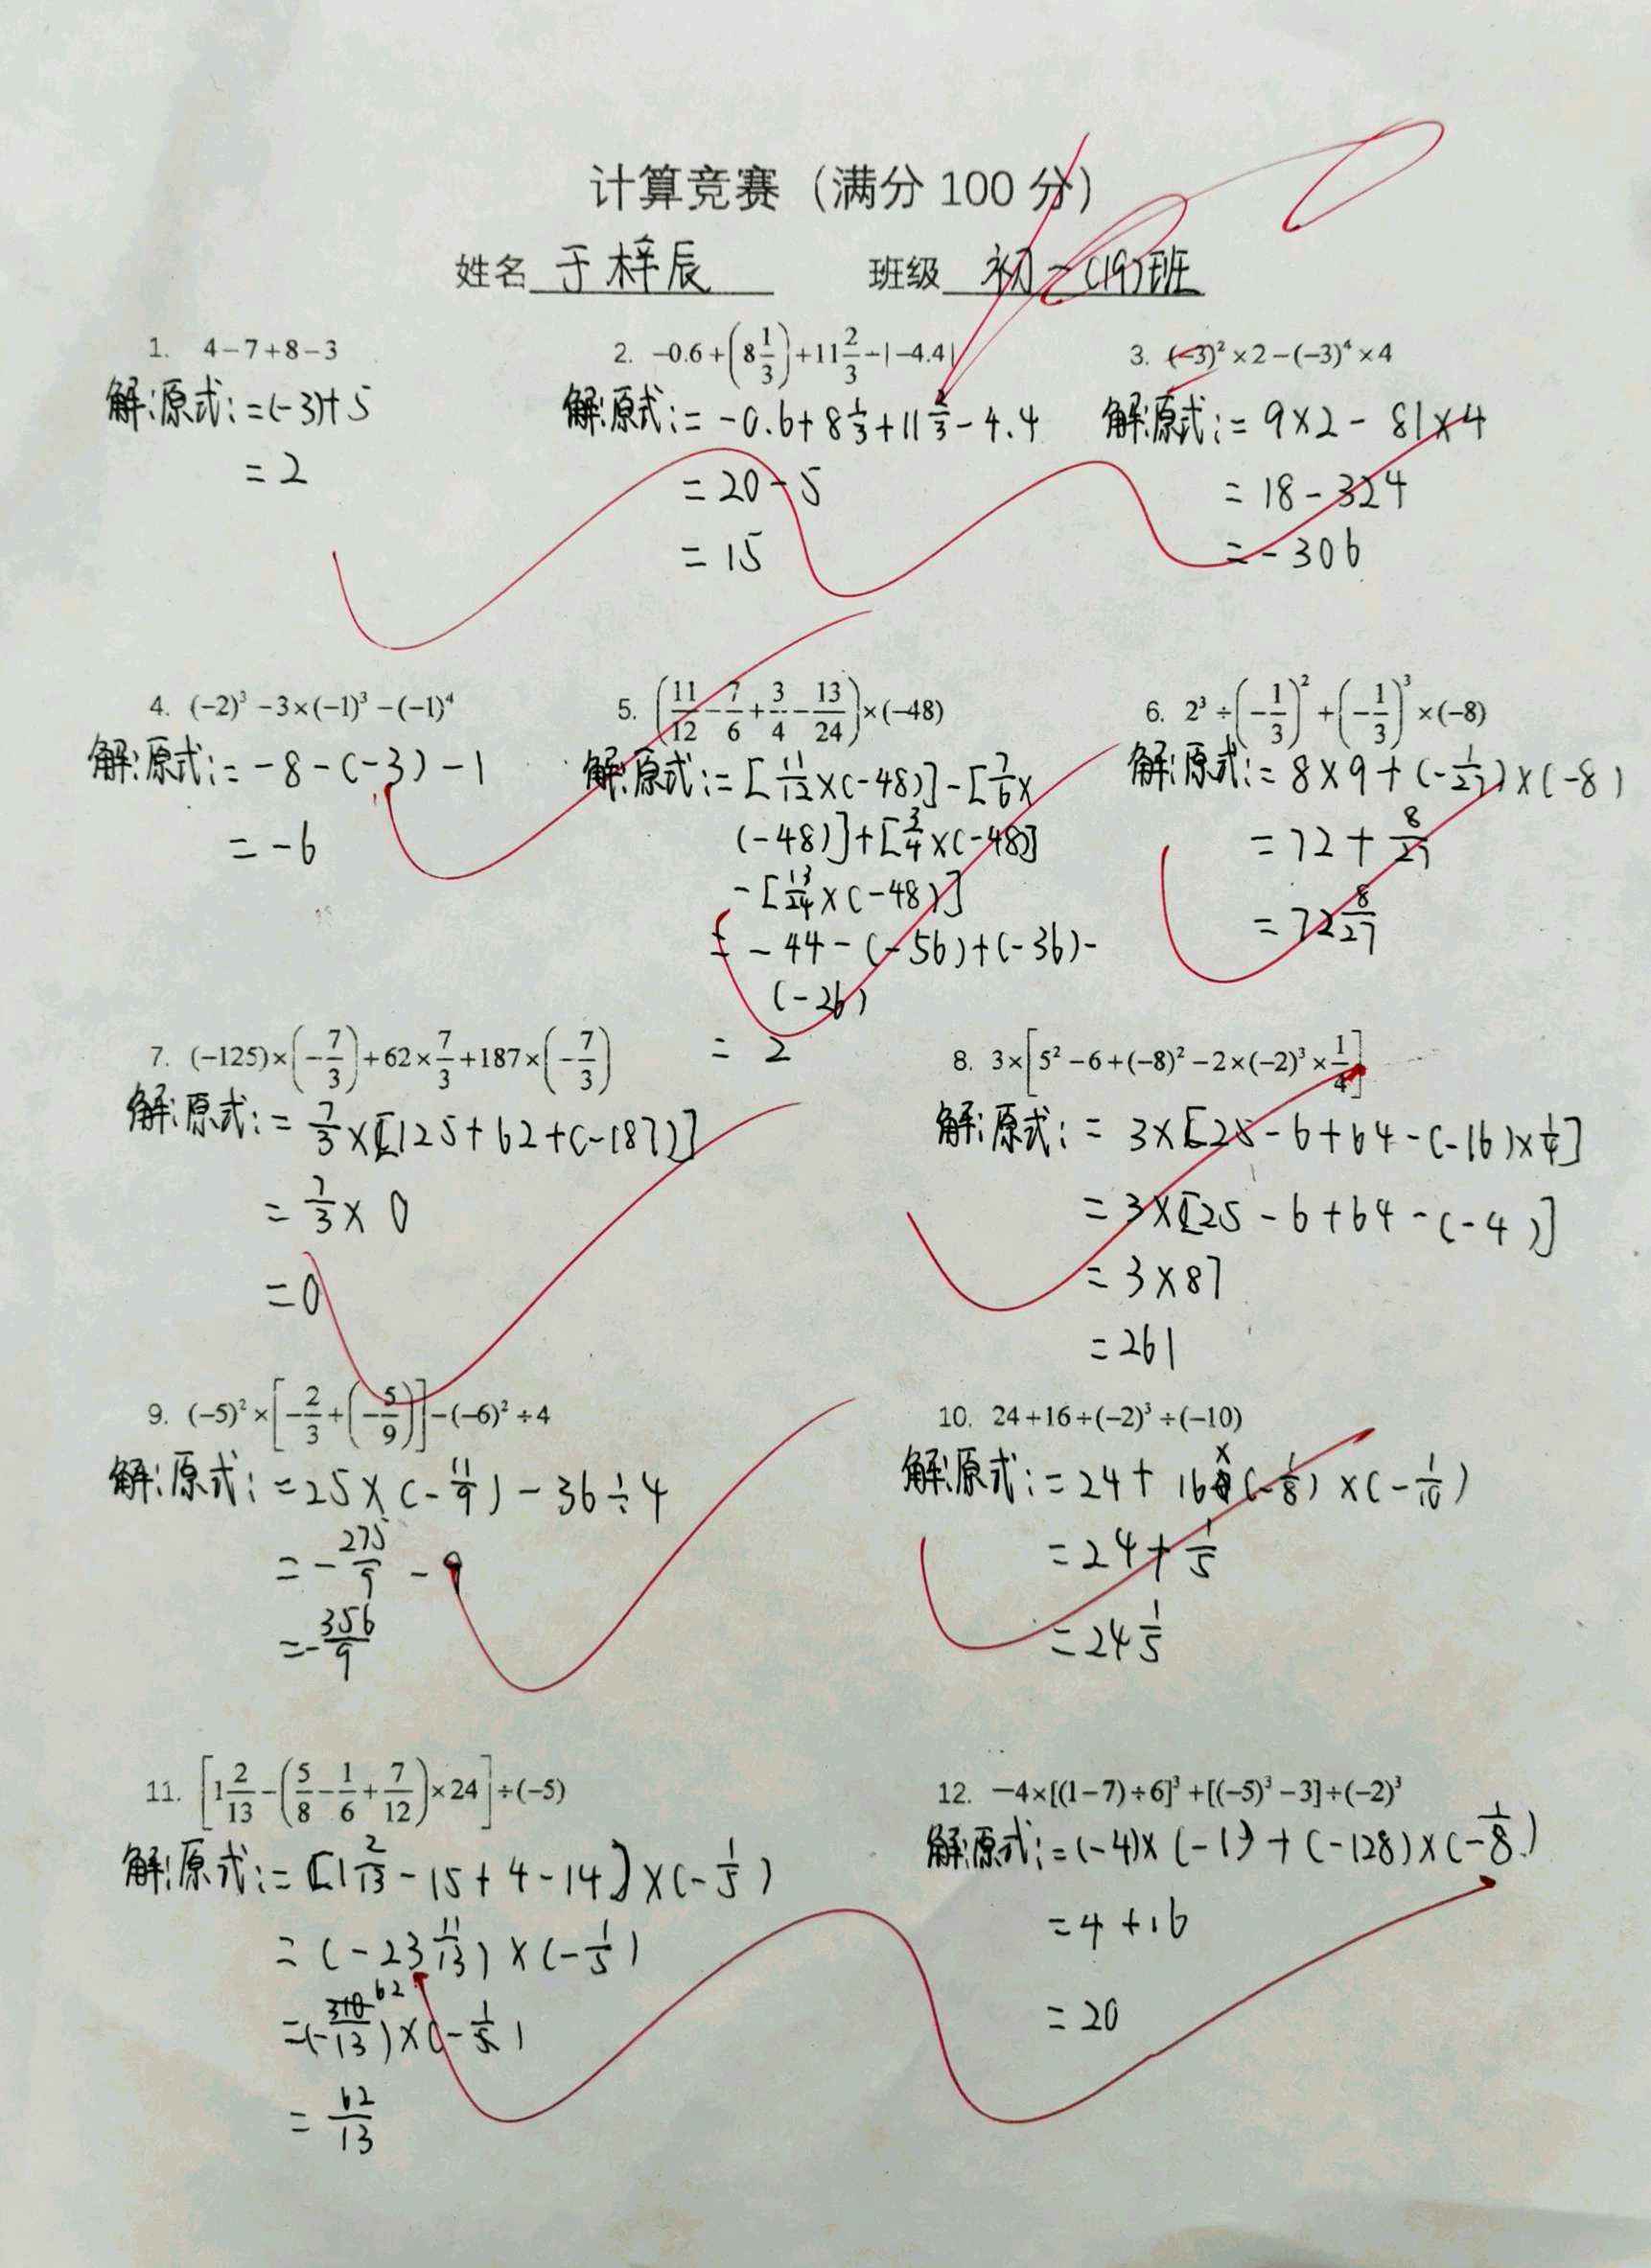 计算竞赛（满分 100 分）
姓名 于梓辰 班级 初一(19)班
1. 4−7+8−3
解:原式:=(-3)+5
=2
2. −0.6+(8 1/3)+11 2/3−|−4.4|
解:原式:=-0.6+8 1/3+11 2/3-4.4
=20-5
=15
3. (−3)²×2−(−3)⁴×4
解:原式:=9×2-81×4
=18-324
=-306
4. (−2)³−3×(−1)³−(−1)⁴
解:原式:=-8-(-3)-1
=-6
5. (11/12−7/6+3/4−13/24)×(−48)
解:原式:=[11/12×(-48)]-[7/6×
(-48)]+[3/4×(-48)]
-[13/24×(-48)]
=-44-(-56)+(-36)-
(-26)
=2
6. 2³÷(−1/3)²+(−1/3)³×(−8)
解:原式:=8×9+(-1/27)×(-8)
=72+8/27
=72 8/27
7. (−125)×(−7/3)+62×7/3+187×(−7/3)
解:原式:=7/3×[125+62+(-187)]
=7/3×0
=0
8. 3×[5²−6+(−8)²−2×(−2)³×1/4]
解:原式:=3×[25-6+64-(-16)×1/4]
=3×[25-6+64-(-4)]
=3×87
=261
9. (−5)²×[−2/3+(−5/9)]−(−6)²÷4
解:原式:=25×(-11/9)-36÷4
=-275/9-9
=-356/9
10. 24+16÷(−2)³÷(−10)
解:原式:=24+16×(-1/8)×(-1/10)
=24+1/5
=24 1/5
11. [1 2/13−(5/8−1/6+7/12)×24]÷(−5)
解:原式:=[1 2/13-15+4-14]×(-1/5)
=(-23 11/13)×(-1/5)
=(-310/13)×(-1/5) 62
=62/13
12. −4×[(1−7)÷6]³+[(−5)³−3]÷(−2)³
解:原式:=(-4)×(-1)+(-128)×(-1/8)
=4+16
=20